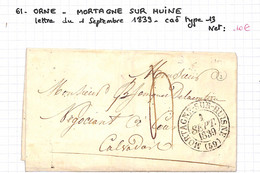 61- ORNE - MORTAGNE SUR HUINE
lettre du 1 Septembre 1839 - cad type 13
Net: 10€
Monsieur
Monsieur
Negociant à
Calvados
MORTAGNE-SUR-HUISNE (59)
1
SEPT.
1839